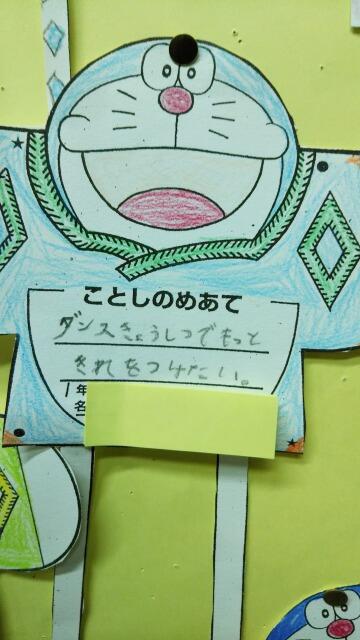 ことしのめあて
ダンスきょうしつでもっと
きれをつけたい。
1年
名